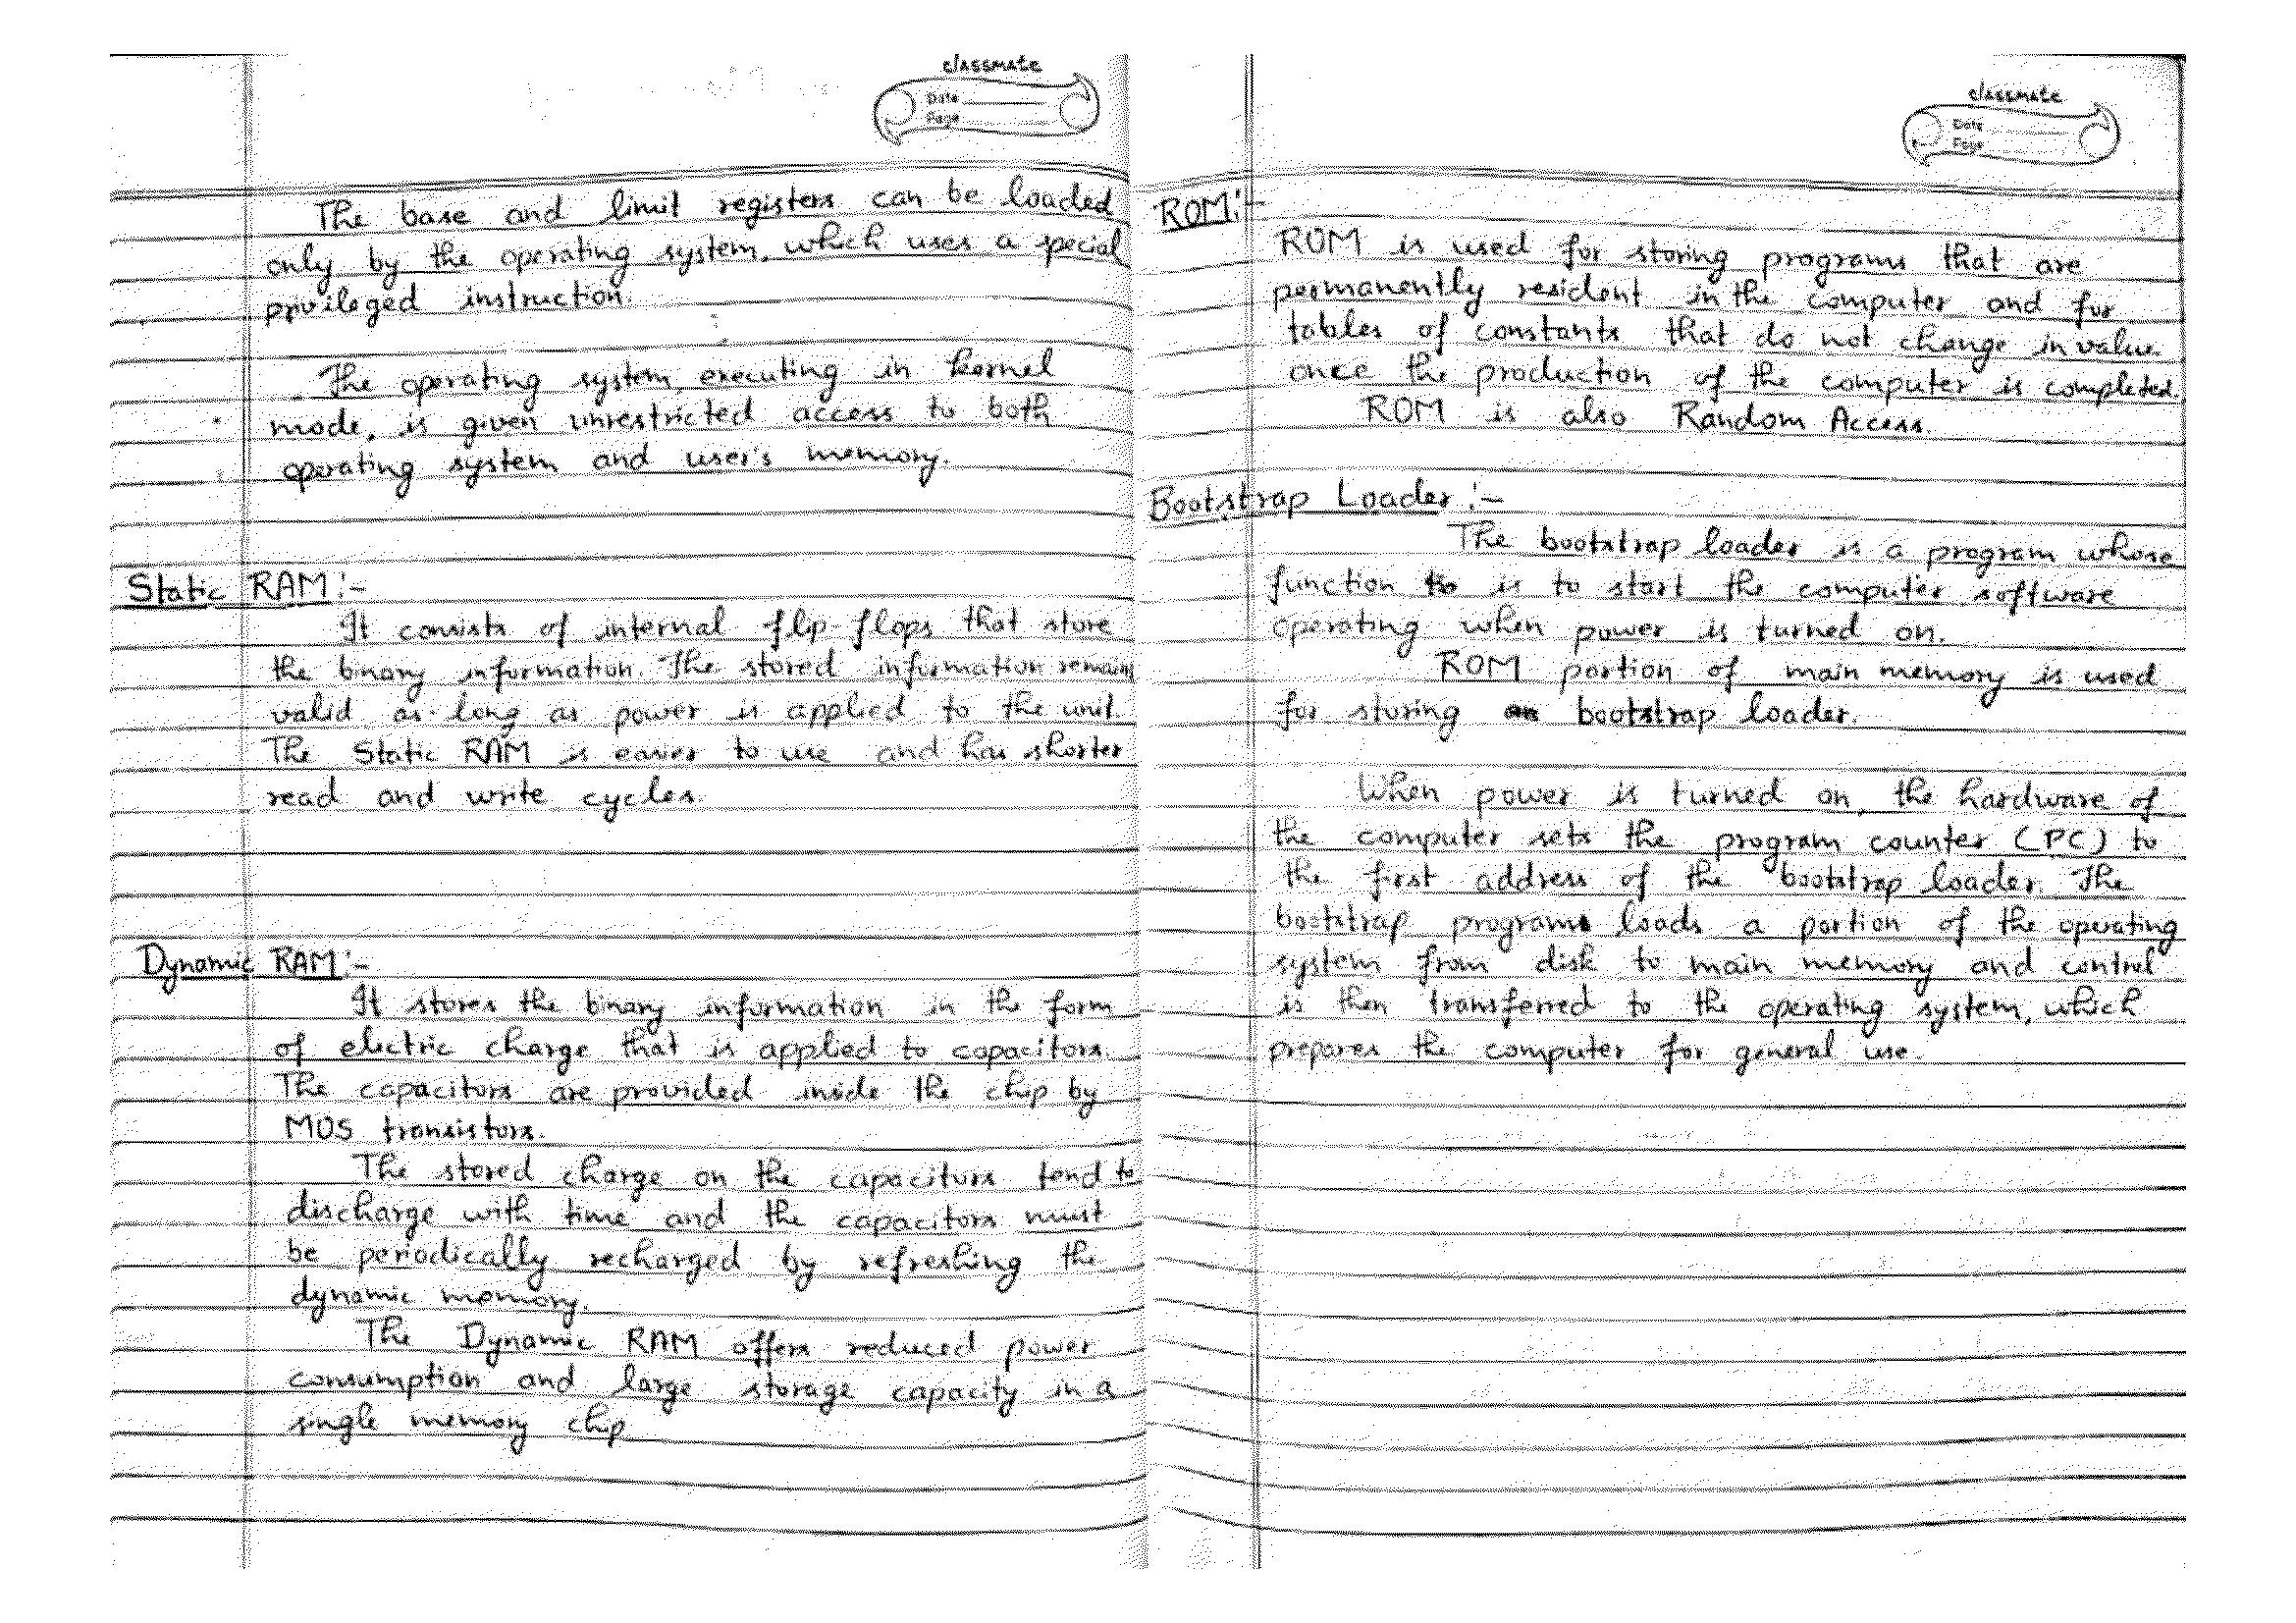 classmate
Date
Page
The base and limit registers can be loaded
only by the operating system, which uses a special
privileged instruction.
The operating system, executing in kernel
mode, is given unrestricted access to both
operating system and user's memory.
Static RAM:-
It consists of internal flip-flops that store
the binary information. The stored information remains
valid as long as power is applied to the unit.
The Static RAM is easier to use and has shorter
read and write cycles.
Dynamic RAM:-
It stores the binary information in the form
of electric charge that is applied to capacitors.
The capacitors are provided inside the chip by
MOS transistors.
The stored charge on the capacitors tend to
discharge with time and the capacitors must
be periodically recharged by refreshing the
dynamic memory.
The Dynamic RAM offers reduced power
consumption and large storage capacity in a
single memory chip.
classmate
Date
Page
ROM:-
ROM is used for storing programs that are
permanently resident in the computer and for
tables of constants that do not change in value
once the production of the computer is completed.
ROM is also Random Access.
Bootstrap Loader:-
The bootstrap loader is a program whose
function is to start the computer software
operating when power is turned on.
ROM portion of main memory is used
for storing bootstrap loader.
When power is turned on, the hardware of
the computer sets the program counter (PC) to
the first address of the bootstrap loader. The
bootstrap program loads a portion of the operating
system from disk to main memory and control
is then transferred to the operating system, which
prepares the computer for general use.